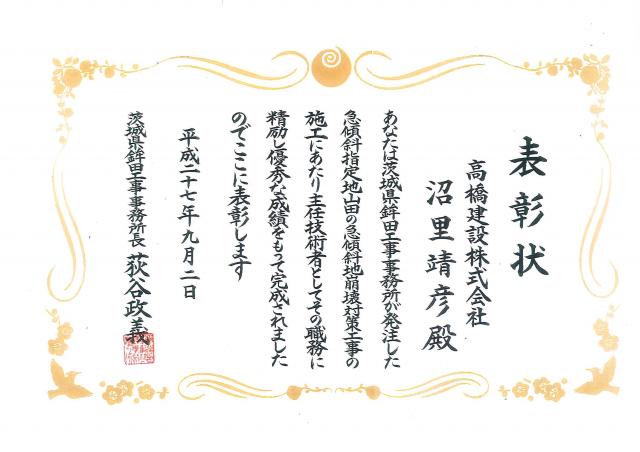 表彰状
高橋建設株式会社
沼里靖彦殿
あなたは茨城県鉾田工事事務所が発注した
急傾斜指定地山田の急傾斜地崩壊対策工事の
施工にあたり主任技術者としてその職務に
精励し優秀な成績をもって完成されました
のでここに表彰します
平成二十七年九月二日
茨城県鉾田工事事務所長 荻谷政義